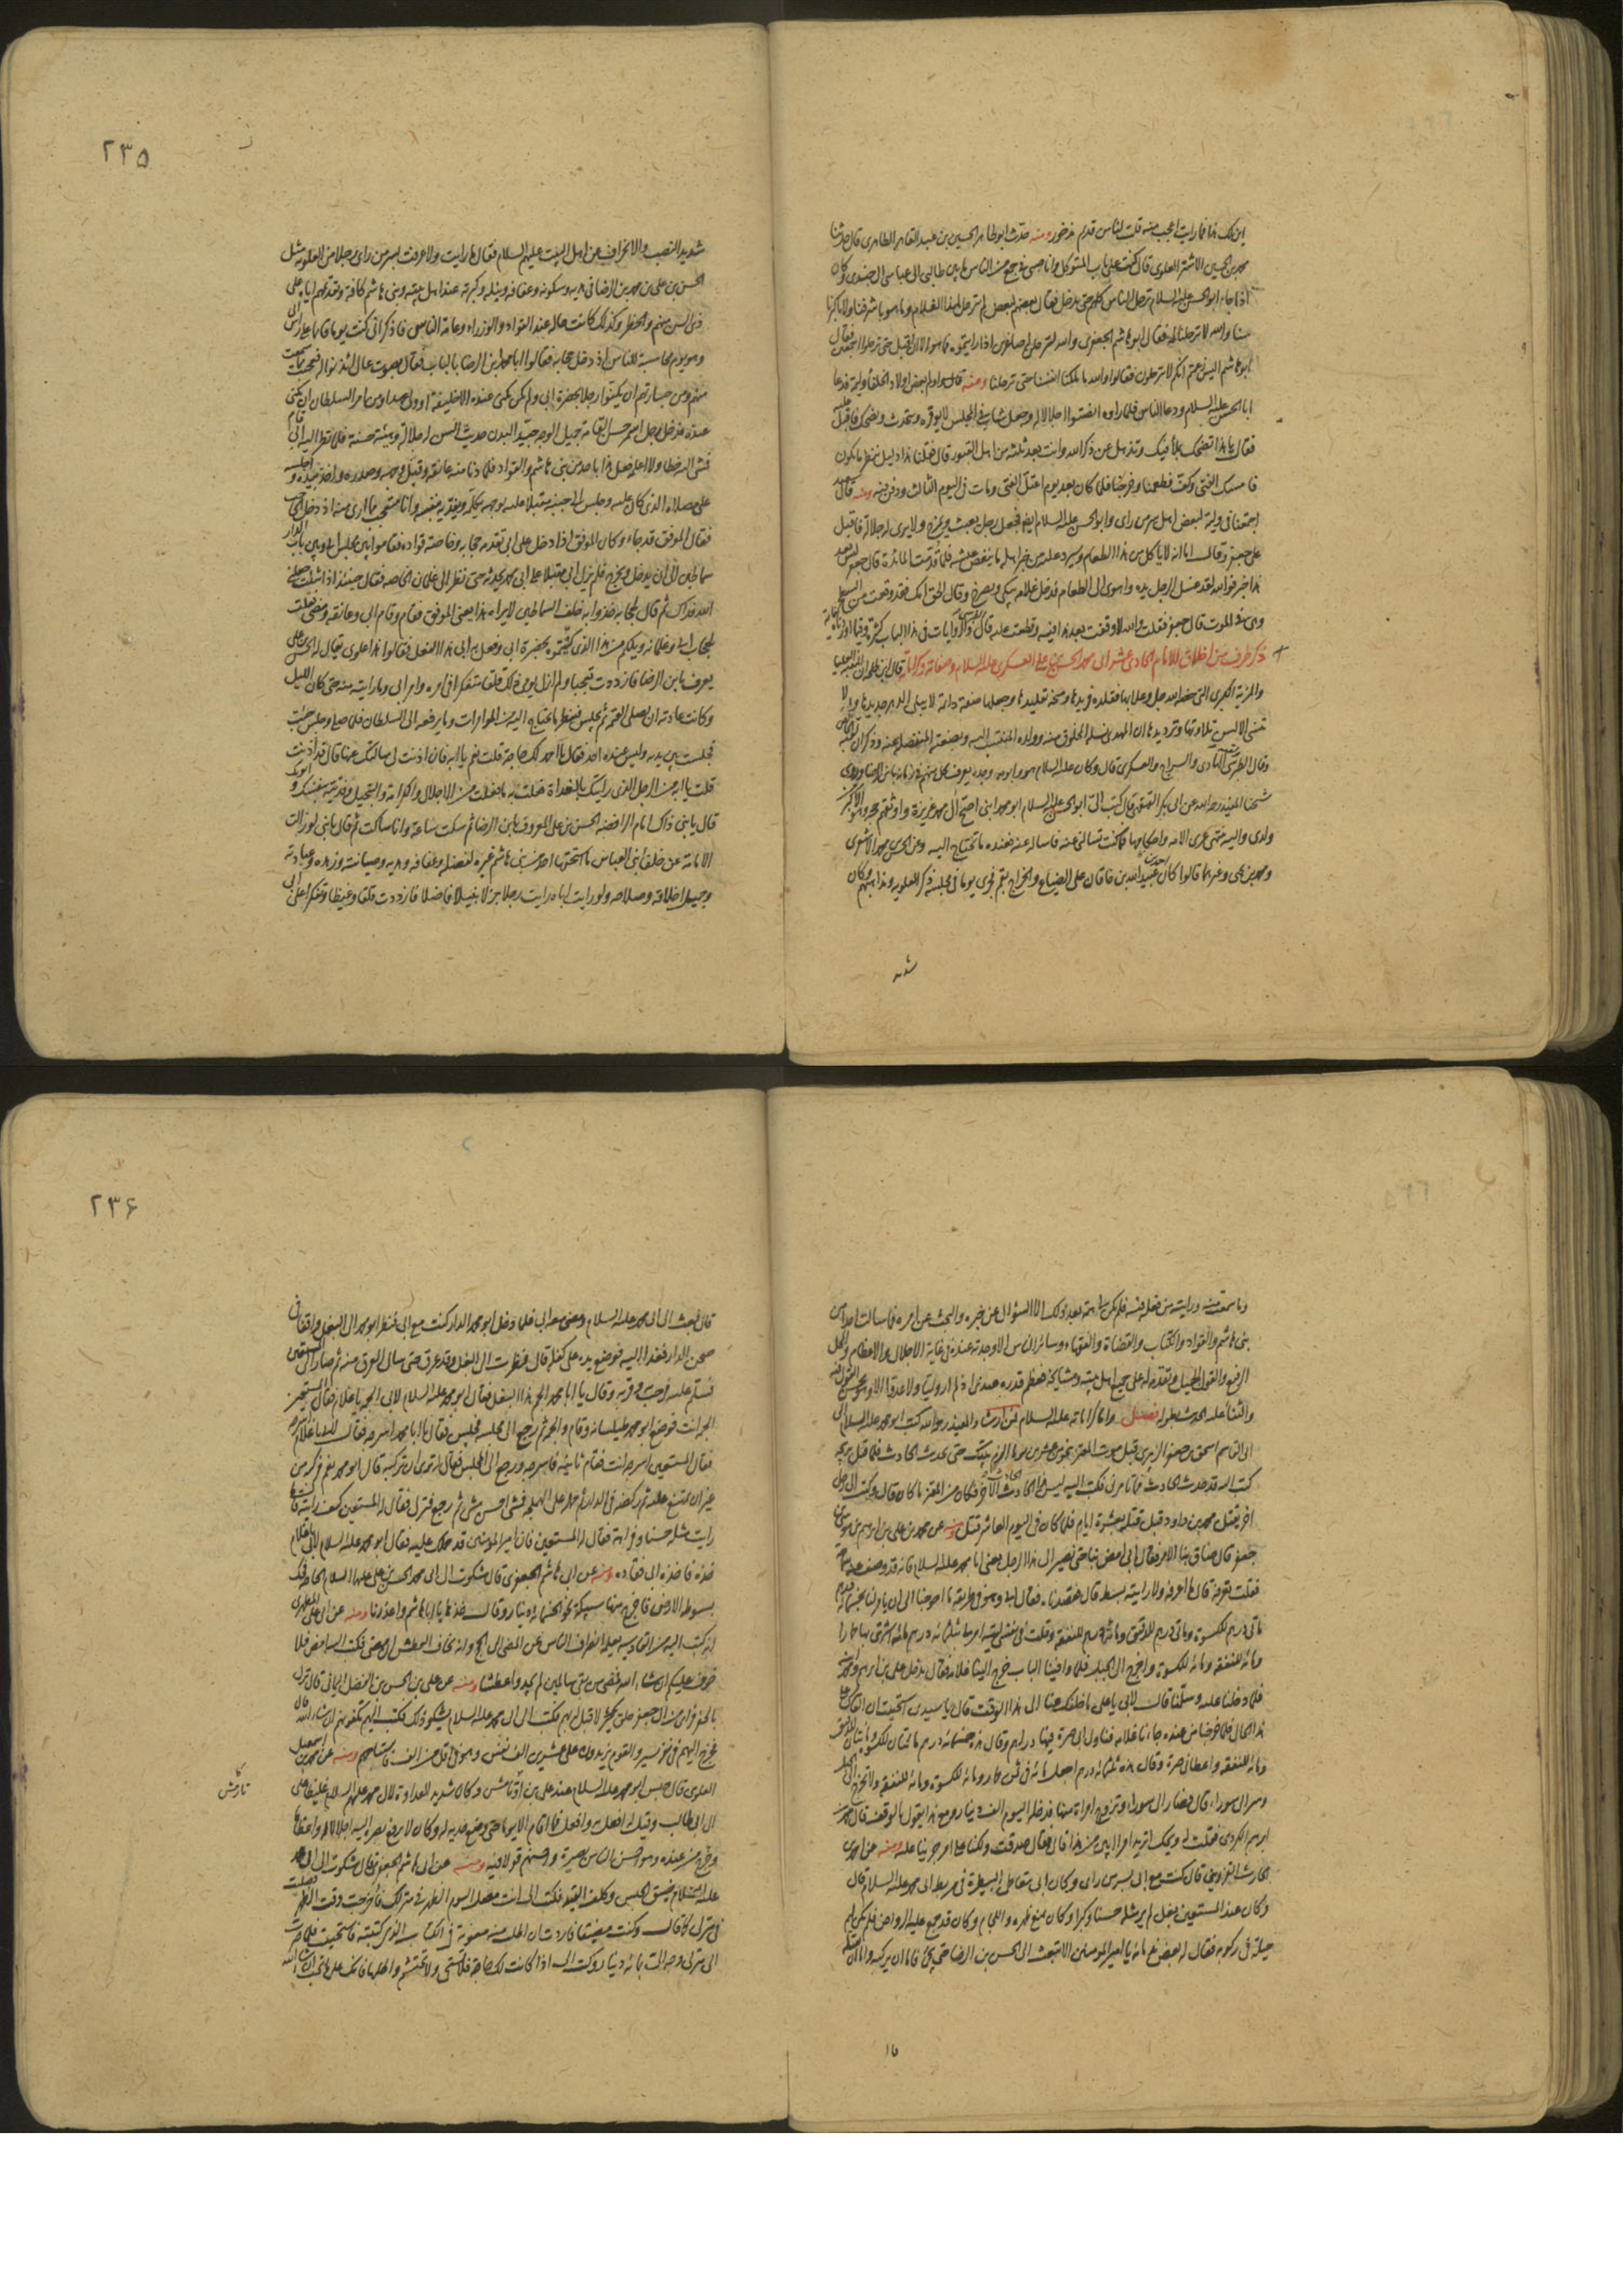 ابن لك هذا فما رايت اعجب منه قلت الناس قدم فرخور ومنه حدث ابو طاهر الحسين بن عبد القاهر الطاهري قال حدثنا
محمد بن الحسين الاشتر العلوي قال كنت على باب المتوكل وانا صبي في جمع من الناس ما بين طالبي الى عباسي الى جندي وكان
اذا جاء ابو الحسن عليه السلام ترجل الناس كلهم حتى يدخل فقال بعضهم لبعض لم نترجل لهذا الغلام وما هو باشرفنا ولا باكبرنا
سنا والله لا ترجلنا له فقال ابو هاشم الجعفري والله لترجلن له صاغرين اذا رايتموه فما هو الا ان اقبل حتى ترجلوا اجمعين فقال
ابو هاشم اليس زعمتم انكم لا تترجلون فقالوا والله ما ملكنا انفسنا حتى ترجلنا ومنه قال اولم بعض اولاد الخلفا وليمة فدعا
ابا الحسن عليه السلام ودعا الناس فلما راوه انصتوا اجلالا له وجعل شاب في المجلس لا يوقره ويتحدث ويضحك فاقبل عليه
فقال ما هذا اتضحك بملأ فيك وتذهل عن ذكر الله وانت بعد ثلثة من اهل القبور قال فقلنا هذا دليل ننظر ما يكون
فامسك الفتى وكف فطعمنا وخرجنا فلما كان بعد يوم اعتل الفتى ومات في اليوم الثالث ودفن فيه ومنه قال سعيد
اجتمعنا في وليمة لبعض اهل سر من راى وابو الحسن عليه السلام ايضا فجعل رجل يعبث ويمزح ولا يرى له جلالة فاقبل
على جعفر وقال اما انه لا ياكل من هذا الطعام وسيرد عليه من خبر اهله ما ينغص عيشه فلما قدمت المائدة قال جعفر ليس بعد
هذا خبر فوالله لقد غسل الرجل يده واهوى الى الطعام فدخل غلامه يبكي ويصرخ وقال الحق امك فقد وقعت من السطح
وهي في الموت قال جعفر فقلت والله لا وقفت بعد هذا فيه وقطعت عليه قال والروايات في هذا الباب كثيرة وفيما اوردناه كفاية
ذكر طرف من اخلاق الامام الحادي عشر ابي محمد الحسن بن علي العسكري عليه السلام وصفاته وكراماته قال ابن طلحة ان المنقبة العليا
والمزية الكبرى التي خصه الله جل وعلا بها فقلده فريدها ومنحه تقليدها وجعلها صفة دائمة لا يبلي الدهر جديدها ولا
تنسى الالسن تلاوتها وترديدها ان المهدي نسله المخلوق منه وولده المنتسب اليه وبضعته المنفصلة عنه وذكر ان لقبه الخالص
وقال الطبرسي الهادي والسراج والعسكري قال وكان عليه السلام هو وابوه وجده يعرف كل منهم في زمانه بابن الرضا وروى
شيخنا المفيد رحمه الله عن ابي بكر الفهفكي قال كتب الي ابو الحسن عليه السلام ابو محمد ابني اصح آل محمد غريزة واوثقهم حجة وهو الاكبر من
ولدي واليه ينتهي عرى الامامة واحكامها فما كنت تسالني عنه فاساله عنه فعنده ما تحتاج اليه وعن الحسن بن محمد الاشعري
ومحمد بن يحيى وغيرهما قالوا كان احمد بن عبيد الله بن خاقان على الضياع والخراج بقم فجرى يوما في مجلسه ذكر العلوية ومذاهبهم وكان
شديد
٢٣٥
شديد النصب والانحراف عن اهل البيت عليهم السلام فقال ما رايت ولا عرفت بسر من راى رجلا من العلوية مثل
الحسن بن علي بن محمد بن الرضا في هديه وسكونه وعفافه ونبله وكبرته عند اهل بيته وبني هاشم كافة وتقديمهم اياه على
ذوي السن منهم والخطر وكذلك كانت حاله عند القواد والوزراء وعامة الناس فاذكر اني كنت يوما قائما على راس ابي
وهو يوم مجلسه للناس اذ دخل حجابه فقالوا ابا محمد ابن الرضا بالباب فقال بصوت عال ائذنوا له فتعجبت مما سمعت
منهم ومن جسارتهم ان يكنوا رجلا بحضرة ابي ولم يكن يكنى عنده الا خليفة او ولي عهد او من امر السلطان ان يكنى
عنده فدخل رجل اسمر حسن القامة جميل الوجه جيد البدن حديث السن له جلالة وهيئة حسنة فلما نظر اليه ابي قام
فمشى اليه خطا ولا اعلمه فعل هذا باحد من بني هاشم والقواد فلما دنا منه عانقه وقبل وجهه وصدره واخذ بيده واجلسه
على مصلاه الذي كان عليه وجلس الى جنبه مقبلا عليه بوجهه يكلمه ويفديه بنفسه وانا متعجب مما ارى منه اذ دخل الحاجب
فقال الموفق قد جاء وكان الموفق اذا دخل على ابي تقدمه حجابه وخاصة قواده فقاموا بين مجلس ابي وبين باب الدار
سماطين الى ان يدخل ويخرج فلم يزل ابي مقبلا على ابي محمد يحدثه حتى نظر الى غلمان الخاصة فقال حينئذ اذا شئت جعلني
الله فداك ثم قال لحجابه خذوا به خلف السماطين لا يراه هذا يعني الموفق فقام وقام ابي وعانقه ومضى فقلت
لحجاب ابي وغلمانه ويلكم من هذا الذي كنيتموه بحضرة ابي وفعل به ابي هذا الفعل فقالوا هذا علوي يقال له الحسن بن علي
يعرف بابن الرضا فازددت تعجبا ولم ازل يومي ذلك قلقا متفكرا في امره وامر ابي وما رايته منه حتى كان الليل
وكانت عادته ان يصلي العتمة ثم يجلس فينظر ما يحتاج اليه من المؤامرات وما يرفعه الى السلطان فلما صلى وجلس جئت
فجلست بين يديه وليس عنده احد فقال يا احمد الك حاجة قلت نعم يا ابه فان اذنت لي سالتك عنها قال قد اذنت
قلت يا ابه من الرجل الذي رايتك بالغداة فعلت به ما فعلت من الاجلال والكرامة والتبجيل وفديته بنفسك وابويك
قال يا بني ذاك امام الرافضة الحسن بن علي المعروف بابن الرضا ثم سكت ساعة وانا ساكت ثم قال يا بني لو زالت
الامامة عن خلفا بني العباس ما استحقها احد من بني هاشم غيره لفضله وعفافه وهديه وصيانته وزهده وعبادته
وجميل اخلاقه وصلاحه ولو رايت اباه رايت رجلا جزلا نبيلا فاضلا فازددت قلقا وغيظا وتفكرا على ابي
وما سمعت منه ورايته من فعله فيه فلم يكن لي همة بعد ذلك الا السؤال عن خبره والبحث عن امره فما سالت احدا من
بني هاشم والقواد والكتاب والقضاة والفقهاء وسائر الناس الا وجدته عنده في غاية الاجلال والاعظام والمحل
الرفيع والقول الجميل والتقديم له على جميع اهل بيته ومشايخه فعظم قدره عندي اذ لم ار له وليا ولا عدوا الا وهو يحسن القول فيه
والثنا عليه الحديث بطوله فصل واما كراماته عليه السلام فمن ارشاد المفيد رحمه الله كتب ابو محمد عليه السلام الى
ابي القاسم اسحق بن جعفر الزبيري قبل موت المعتز بنحو من عشرين يوما الزم بيتك حتى يحدث الحادث فلما قتل بريحة
كتب اليه قد حدث الحادث فما تامرني فكتب اليه ليس هذا الحادث الحادث الآخر فكان من المعتز ما كان قال وكتب الى رجل
اخر يقتل محمد بن داود قبل قتله بعشرة ايام فلما كان في اليوم العاشر قتل ومنه عن محمد بن علي بن ابراهيم بن موسى بن
جعفر قال ضاق بنا الامر فقال ابي امض بنا حتى نصير الى هذا الرجل يعني ابا محمد عليه السلام فانه قد وصف عنه سماحة
فقلت تعرفه قال ما اعرفه ولا رايته قط قال فقصدناه فقال ابي وهو في طريقه ما احوجنا الى ان يامر لنا بخمسمائة درهم
مائتي درهم للكسوة ومائتي درهم للدقيق ومائة درهم للنفقة وقلت في نفسي ليته امر لي بثلثمائة درهم مائة اشتري بها حمارا
ومائة للنفقة ومائة للكسوة واخرج الى الجبل فلما وافينا الباب خرج الينا غلامه فقال يدخل علي بن ابراهيم ومحمد ابنه
فلما دخلنا عليه وسلمنا قال لابي يا علي ما خلفك عنا الى هذا الوقت قال يا سيدي استحييت ان القاك على
هذا الحال فلما خرجنا من عنده جاءنا غلامه فناول ابي صرة فيها دراهم وقال هذه خمسمائة درهم مائتان للكسوة ومائتان للدقيق
ومائة للنفقة واعطاني صرة وقال هذه ثلثمائة درهم اجعل مائة في ثمن حمار ومائة للكسوة ومائة للنفقة ولا تخرج الى الجبل
وسر الى سورا قال فصار الى سورا وتزوج امراة منها فدخله اليوم الف دينار ومع هذا يقول بالوقف قال محمد بن
ابرهيم الكردي فقلت له ويحك اتريد امرا ابين من هذا قال فقال صدقت ولكنا على امر جرينا عليه ومنه عن احمد بن
الحارث القزويني قال كنت مع ابي بسر من راى وكان ابي يتعاطى البيطرة في مربط ابي محمد عليه السلام قال
وكان عند المستعين بغل لم ير مثله حسنا وكبرا وكان يمنع ظهره واللجام وكان قد جمع عليه الرواض فلم يكن لهم
حيلة في ركوبه فقال له بعض ندمائه يا امير المؤمنين الا تبعث الى الحسن بن الرضا حتى يجئ فاما ان يركبه واما ان يقتله
٢٣۶
قال فبعث الى ابي محمد عليه السلام ومضى معه ابي فلما دخل ابو محمد الدار كنت مع ابي فنظر ابو محمد الى البغل واقفا في
صحن الدار فعدل اليه فوضع يده على كفله قال فنظرت الى البغل وقد عرق حتى سال العرق منه ثم صار الى المستعين
فسلم عليه فرحب به وقربه وقال يا ابا محمد الجم هذا البغل فقال ابو محمد عليه السلام لابي الجمه يا غلام فقال المستعين
الجمه انت فوضع ابو محمد طيلسانه وقام والجمه ثم رجع الى مجلسه فجلس فقال يا ابا محمد اسرجه فقال لابي يا غلام اسرجه
فقال المستعين اسرجه انت فقام ثانية فاسرجه ورجع الى المجلس فقال له ترى ان تركبه قال ابو محمد نعم فركبه من
غير ان يمتنع عليه ثم ركضه في الدار ثم حمله على الهملجة فمشى احسن مشي ثم رجع فنزل فقال له المستعين كيف رايته قال ما
رايت مثله حسنا وفراهة فقال له المستعين فان امير المؤمنين قد حملك عليه فقال ابو محمد عليه السلام لابي يا غلام
خذه فاخذه ابي فقاده ومنه عن ابي هاشم الجعفري قال شكوت الى ابي محمد الحسن بن علي عليهما السلام الحاجة فحك
بسوطه الارض فاخرج منها سبيكة نحو الخمسمائة دينار وقال خذها يا ابا هاشم واعذرنا ومنه عن ابي علي المطهري
انه كتب اليه من القادسية يعلمه انصراف الناس عن المضي الى الحج وانه يخاف العطش ان مضى فكتب اليه امض فلا
خوف عليكم ان شاء الله فمضى من بقي سالمين لم يجدوا عطشا ومنه عن علي بن الحسن بن الفضل اليماني قال نزل
بالجعفري من آل جعفر خلق كثير لا قبل له بهم فكتب الى ابي محمد عليه السلام يشكو ذلك فكتب اليهم تكفونهم ان شاء الله قال
فخرج اليهم في نفر يسير والقوم يزيدون على عشرين الف نفس وهو في اقل من الف فاستباحهم ومنه عن محمد بن اسمعيل
العلوي قال حبس ابو محمد عليه السلام عند علي بن اوتامش وكان شديد العداوة لآل محمد عليهم السلام غليظا على
آل ابي طالب وقيل له افعل به وافعل فما اقام الا يوما حتى وضع خديه له وكان لا يرفع بصره اليه اجلالا له واعظاما
وخرج من عنده وهو احسن الناس بصيرة واحسنهم قولا فيه ومنه عن ابي هاشم الجعفري قال شكوت الى ابي محمد
عليه السلام ضيق الحبس وكلف القيد فكتب الي انت مصلي اليوم الظهر في منزلك فاخرجت وقت الظهر فصليت
في منزلي كما قال وكنت مضيقا فاردت ان اطلب منه معونة في الكتاب الذي كتبته فاستحييت فلما صرت
الى منزلي وجه الي بمائة دينار وكتب الي اذا كانت لك حاجة فلا تستحي ولا تحتشم واطلبها فانك على ما تحب ان شاء الله
نارمش